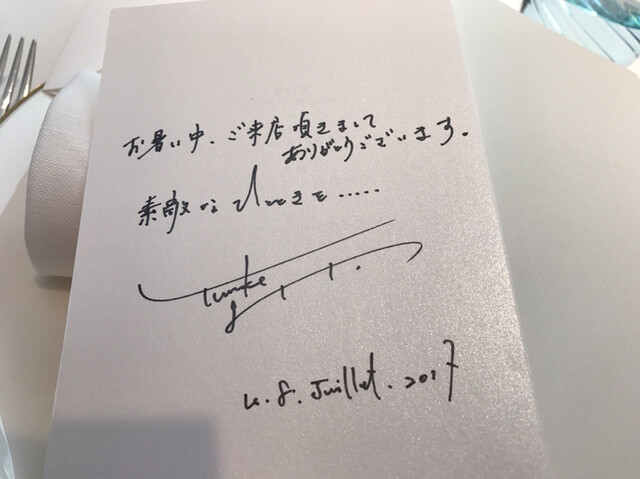 お暑い中、ご来店頂きまして
ありがとうございます。
素敵なひとときを.....
le. 8. Juillet. 2017